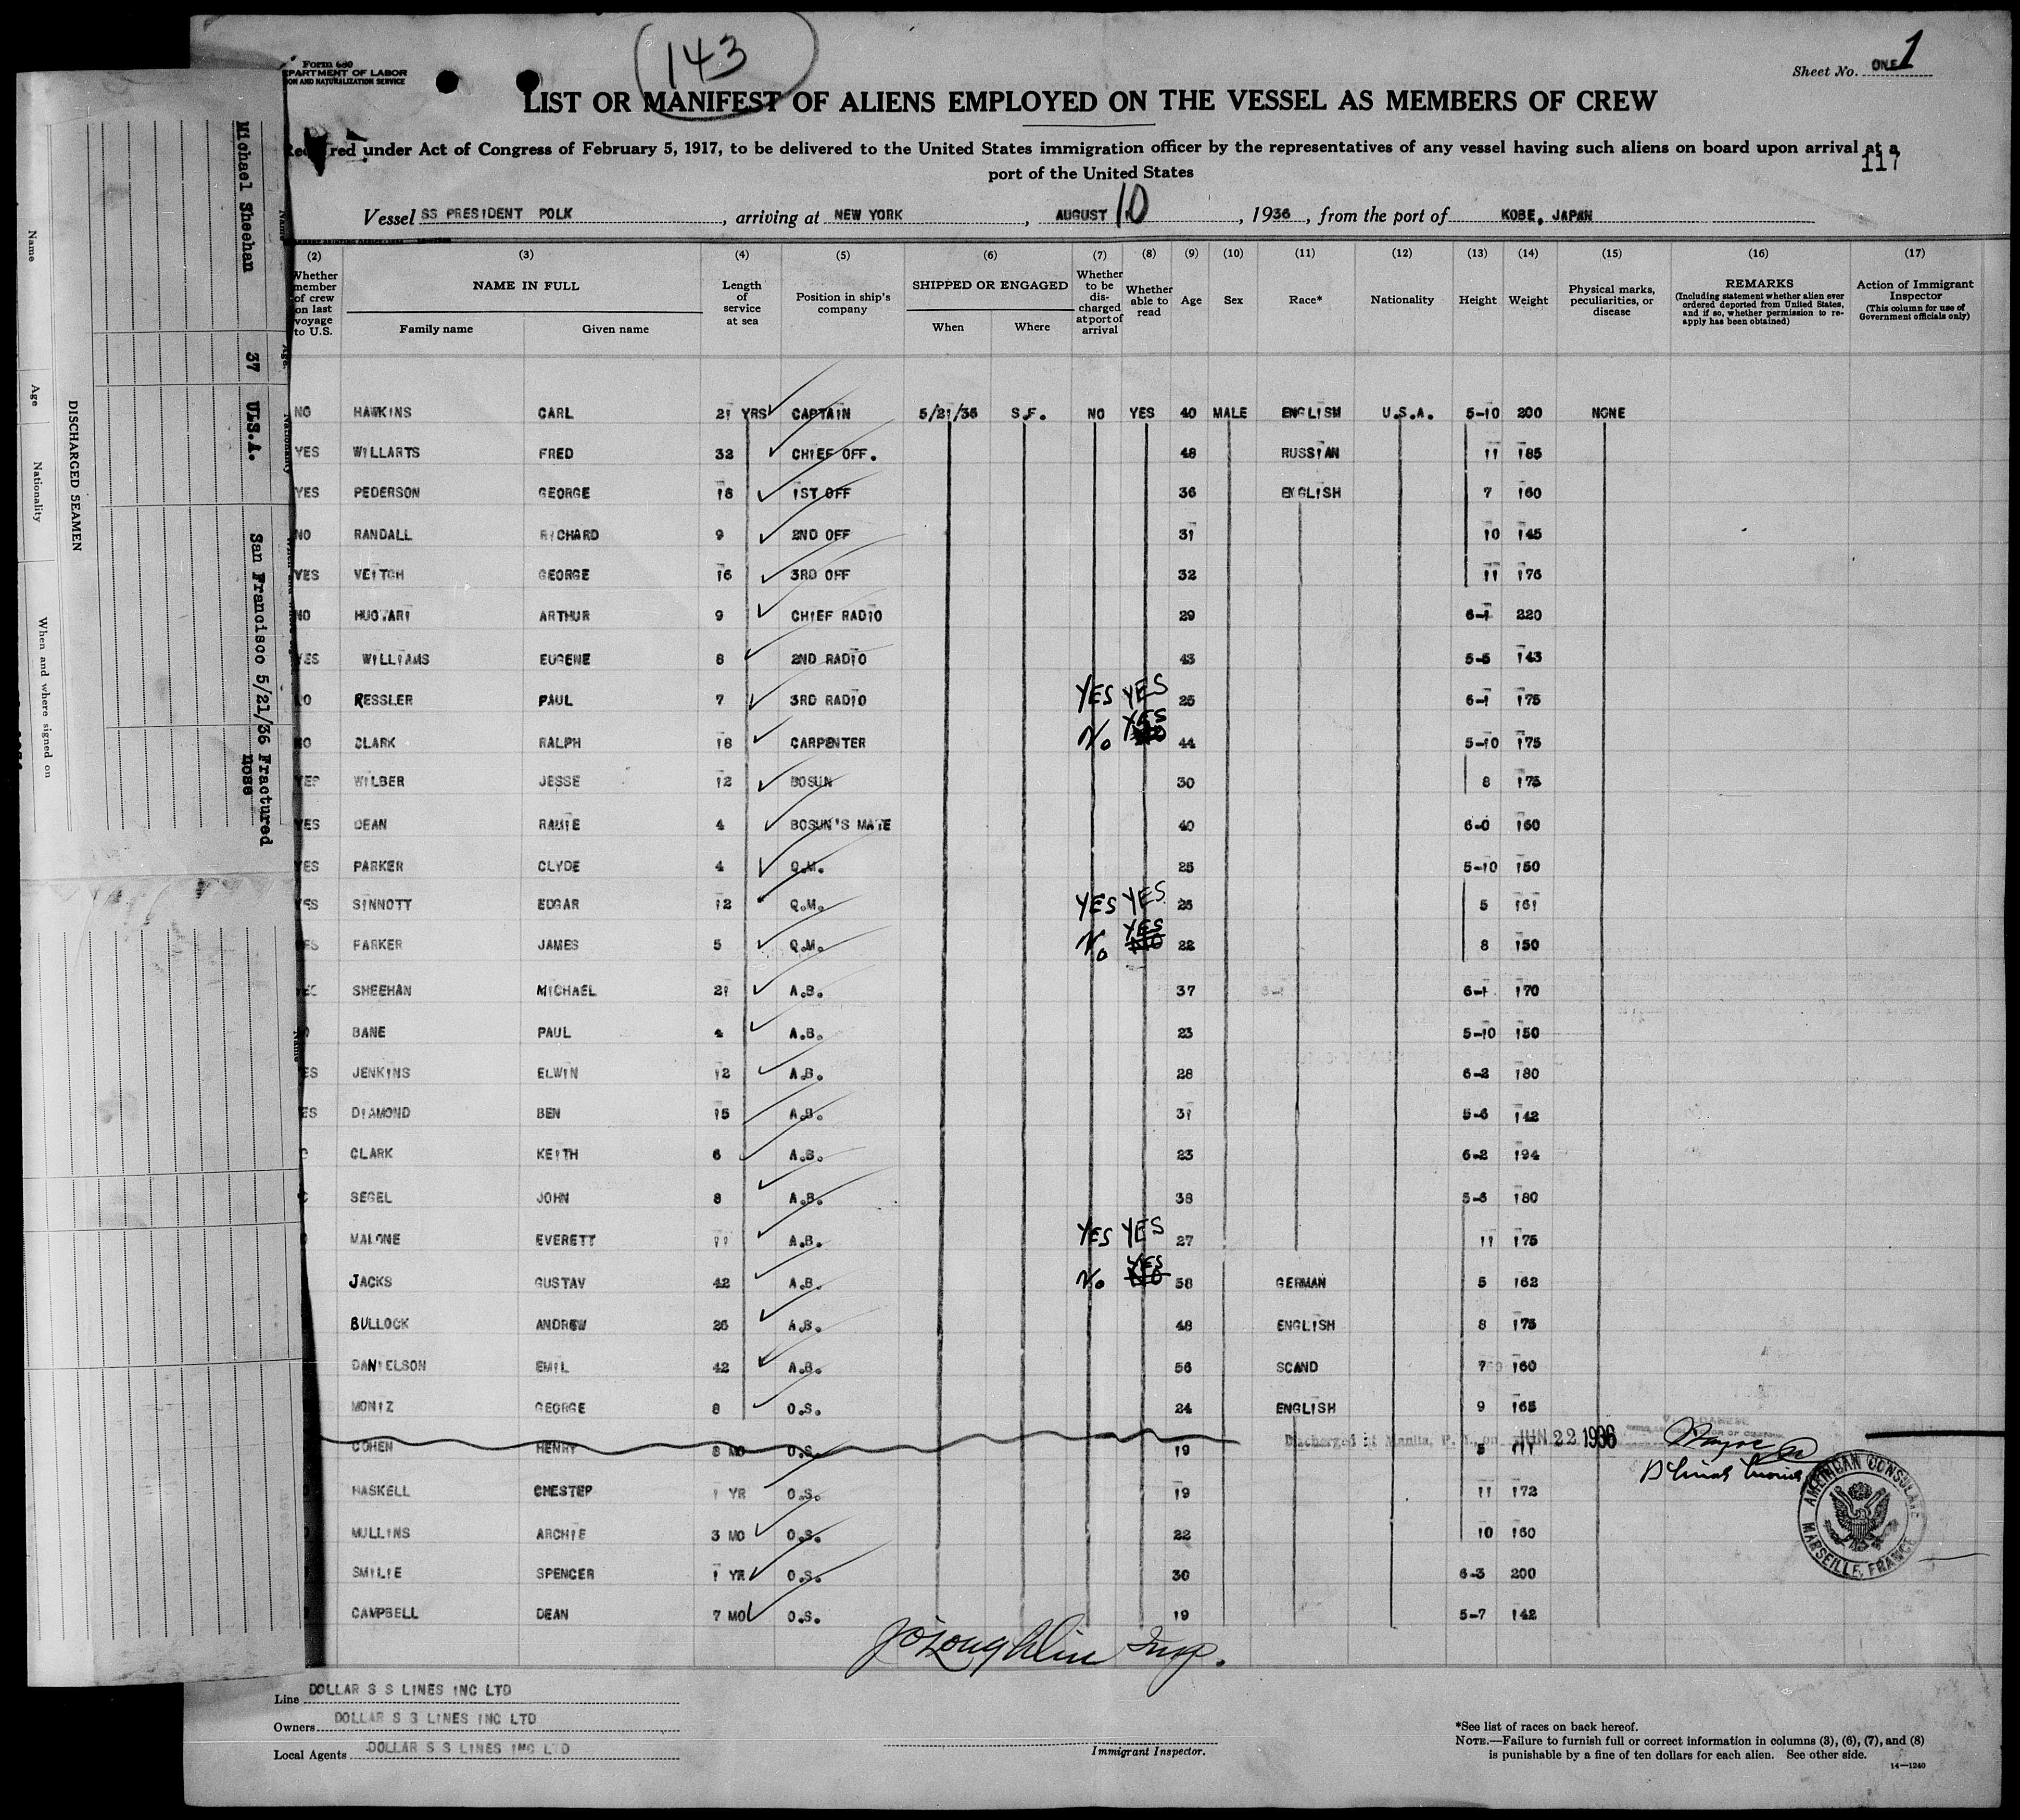 143
Form 680
EPARTMENT OF LABOR
ION AND NATURALIZATION SERVICE
Sheet No. ONE 1
LIST OR MANIFEST OF ALIENS EMPLOYED ON THE VESSEL AS MEMBERS OF CREW
red under Act of Congress of February 5, 1917, to be delivered to the United States immigration officer by the representatives of any vessel having such aliens on board upon arrival at a
port of the United States
117
Vessel SS PRESIDENT POLK , arriving at NEW YORK , AUGUST 10 , 1936 , from the port of KOBE, JAPAN
(2) (3) (4) (5) (6) (7) (8) (9) (10) (11) (12) (13) (14) (15) (16) (17)
Whether member of crew on last voyage to U.S.
NAME IN FULL
Family name Given name
Length of service at sea
Position in ship's company
SHIPPED OR ENGAGED
When Where
Whether to be discharged at port of arrival
Whether able to read
Age Sex Race* Nationality Height Weight
Physical marks, peculiarities, or disease
REMARKS
(Including statement whether alien ever ordered deported from United States, and if so, whether permission to reapply has been obtained)
Action of Immigrant Inspector
(This column for use of Government officials only)
NO HAWKINS CARL 21 YRS CAPTAIN 5/21/36 S.F. NO YES 40 MALE ENGLISH U.S.A. 5-10 200 NONE
YES WILLARTS FRED 32 CHIEF OFF. 48 RUSSIAN 11 185
YES PEDERSON GEORGE 18 1ST OFF 36 ENGLISH 7 160
NO RANDALL RICHARD 9 2ND OFF 31 10 145
YES VEITCH GEORGE 16 3RD OFF 32 11 176
NO ARTHUR 9 CHIEF RADIO 29 6-1 220
YES WILLIAMS EUGENE 8 2ND RADIO 43 5-5 143
O RESSLER PAUL 7 3RD RADIO YES YES 25 6-1 175
NO CLARK RALPH 18 CARPENTER No YES NO 44 5-10 175
YES WILBER JESSE 12 BOSUN 30 8 175
YES DEAN 4 BOSUN'S MATE 40 6-0 160
YES PARKER CLYDE 4 Q.M. 25 5-10 150
YES SINNOTT EDGAR 12 Q.M. YES YES 25 5 161
ES FARKER JAMES 5 Q.M. No YES NO 22 8 150
SHEEHAN MICHAEL 21 A.B. 37 6-1 170
BANE PAUL 4 A.B. 23 5-10 150
ES JENKINS ELWIN 12 A.B. 28 6-2 180
ES DIAMOND BEN 15 A.B. 31 5-6 142
CLARK KEITH 6 A.B. 23 6-2 194
SEGEL JOHN 8 A.B. 38 5-6 180
MALONE EVERETT 11 A.B. YES YES 27 11 175
JACKS GUSTAV 42 A.B. No YES NO 58 GERMAN 5 162
BULLOCK ANDREW 26 A.B. 48 ENGLISH 8 175
DANIELSON EMIL 42 A.B. 56 SCAND 7 160
MONIZ GEORGE 8 O.S. 24 ENGLISH 9 165
COHEN HENRY 8 MO O.S. 19 Discharged at Manila, P. I., on JUN 22 1936 5
HASKELL CHESTER 1 YR O.S. 19 11 172
MULLINS ARCHIE 3 MO O.S. 22 10 160
SMILIE SPENCER 1 YR O.S. 30 6-3 200
CAMPBELL DEAN 7 MO O.S. 19 5-7 142
AMERICAN CONSULATE
MARSEILLE, FRANCE
J O'Loughlin Insp.
Line DOLLAR S S LINES INC LTD
Owners DOLLAR S S LINES INC LTD
Local Agents DOLLAR S S LINES INC LTD
Immigrant Inspector.
*See list of races on back hereof.
NOTE.—Failure to furnish full or correct information in columns (3), (6), (7), and (8)
is punishable by a fine of ten dollars for each alien. See other side.
14—1240
DISCHARGED SEAMEN
Name Age Nationality When and where signed on
Michael Sheehan 37 U.S.A. San Francisco 5/21/36 Fractured
nose